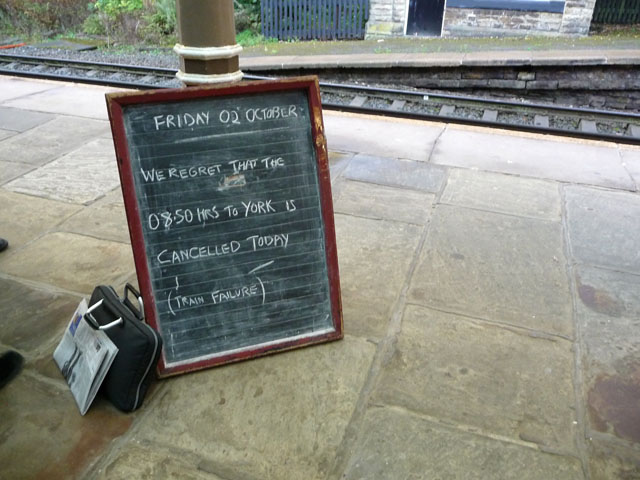 FRIDAY 02 OCTOBER
WE REGRET THAT THE
08.50 HRS TO YORK IS
CANCELLED TODAY
(TRAIN FAILURE)